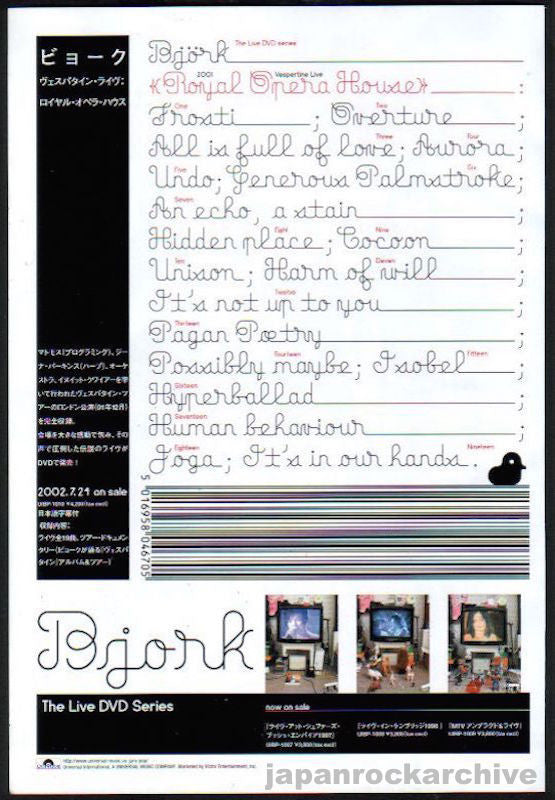 ビョーク
ヴェスパタイン・ライヴ:
ロイヤル・オペラ・ハウス
Björk The Live DVD series
2001 Vespertine Live
«Royal Opera House» :
One Two
Frosti ; Overture ;
Three Four
All is full of love; Aurora;
Five Six
Undo; Generous Palmstroke;
Seven
An echo, a stain ;
Eight Nine
Hidden place ; Cocoon ;
Ten Eleven
Unison ; Harm of will ;
Twelve
It's not up to you ;
Thirteen
Pagan Poetry ;
Fourteen Fifteen
Possibly maybe; Isobel ;
Sixteen
Hyperballad ;
Seventeen
Human behaviour ;
Eighteen Nineteen
Joga ; It's in our hands .
マトモス(プログラミング)、ジー
ナ・パーキンス(ハープ)、オーケ
ストラ、イヌイット・クワイアーを率
いて行われたヴェスパタイン・ツ
アーのロンドン公演(01年12月)
を完全収録。
会場を大きな感動で包み、その
声で圧倒した伝説のライヴが
DVDで発売!
2002.7.24 on sale
UIBP-1010 ¥4,200(tax excl)
日本語字幕付
収録内容:
ライヴ全19曲、ツアー・ドキュメン
タリー(ビョークが語る『ヴェスパ
タイン』アルバム&ツアー)
5 016958 046705
Björk
The Live DVD Series
now on sale
『ライヴ・アット・シェファーズ・
ブッシュ・エンパイア1997』
『ライヴ・イン・ケンブリッジ1998』
『MTVアンプラグド&ライヴ』
Universal International, A UNIVERSAL MUSIC COMPANY. Marketed by Victor Entertainment, Inc.
japanrockarchive